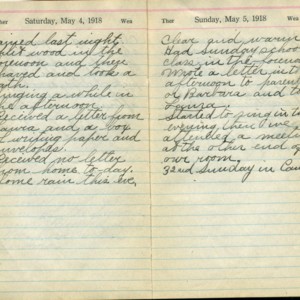 Saturday, May 4, 1918 Wea
ained last night
plit wood in the
orenoon and then
haved and took a
ath.
unning a while in
he afternoon.
eceived a letter from
aura and a box
f writing paper and
nvelopes.
eceived no letter
from home to-day.
ome rain this eve.
Ther Sunday, May 5, 1918 Wea
Clear and warm
Had Sunday school
class in the foreno
Wrote a letter in t
afternoon to paren
or Barbara and to
Started to sing in th
evening then
attended a meeti
at the other end o
our room.
32nd Sunday in Cam